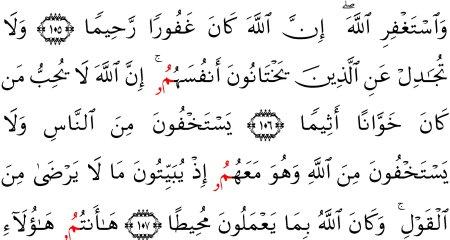 وَٱسْتَغْفِرِ ٱللَّهَۖ إِنَّ ٱللَّهَ كَانَ غَفُورًا رَّحِيمًا ١٠٥ وَلَا
تُجَٰدِلْ عَنِ ٱلَّذِينَ يَخْتَانُونَ أَنفُسَهُمُۥۚ إِنَّ ٱللَّهَ لَا يُحِبُّ مَن
كَانَ خَوَّانًا أَثِيمًا ١٠٦ يَسْتَخْفُونَ مِنَ ٱلنَّاسِ وَلَا
يَسْتَخْفُونَ مِنَ ٱللَّهِ وَهُوَ مَعَهُمُۥ إِذْ يُبَيِّتُونَ مَا لَا يَرْضَىٰ مِنَ
ٱلْقَوْلِۚ وَكَانَ ٱللَّهُ بِمَا يَعْمَلُونَ مُحِيطًا ١٠٧ هَٰأَنتُمُۥ هَٰؤُلَآءِ